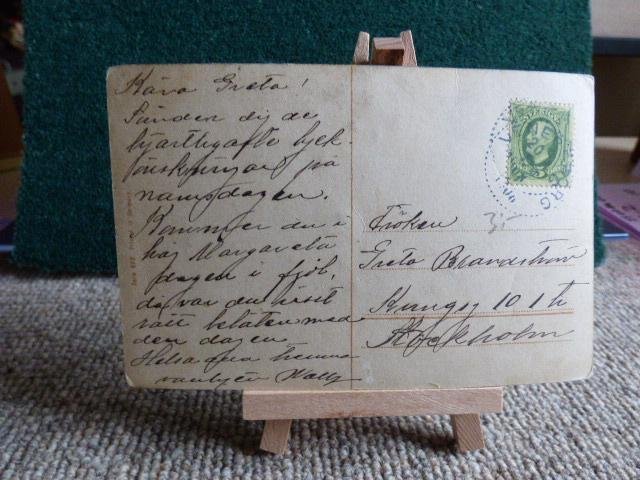 Kära Greta!
Sänder dig de
hjärtligaste lyck-
önskningar på
namnsdagen.
Kommer du i
håg Margareta
dagen i fjol,
då var du visst
rätt belåten med
den dagen
Helsa
Fröken
Greta Brandström
Kungsg 10 1 tr
Stockholm